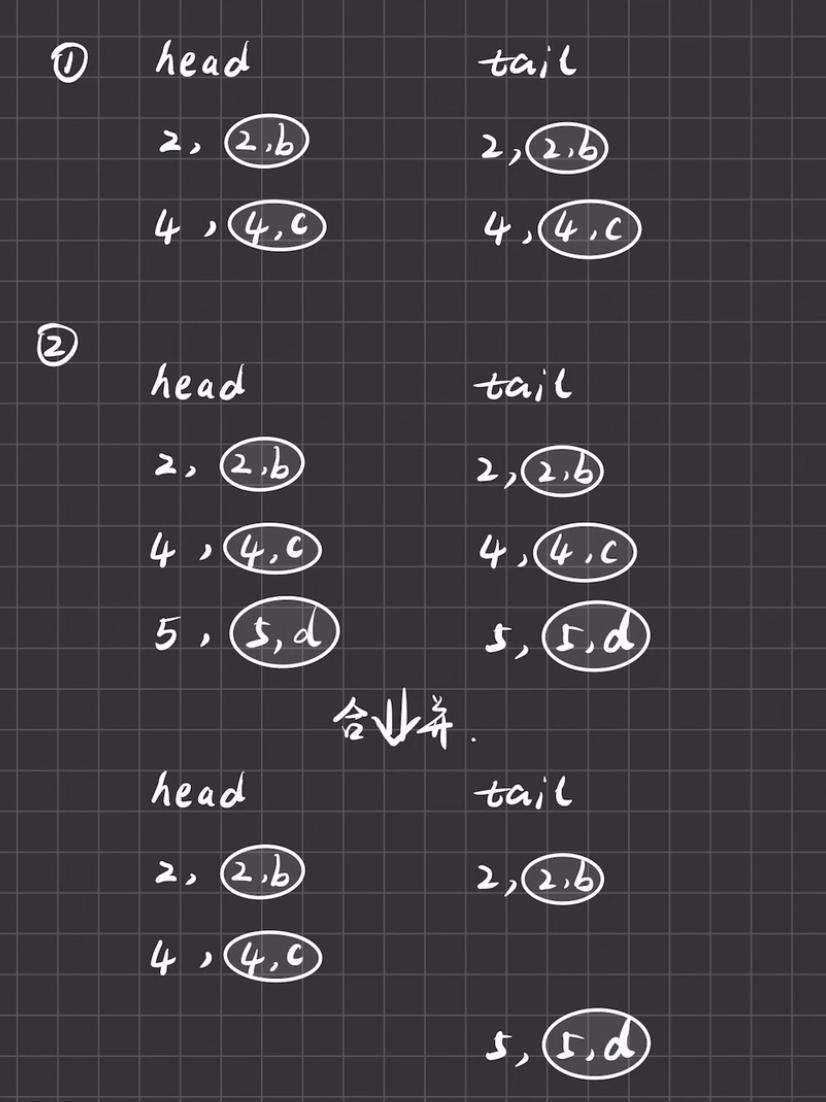 ① head tail
2, 2,b 2, 2,b
4, 4,c 4, 4,c
②
head tail
2, 2,b 2, 2,b
4, 4,c 4, 4,c
5, 5,d 5, 5,d
合并.
head tail
2, 2,b 2, 2,b
4, 4,c
5, 5,d